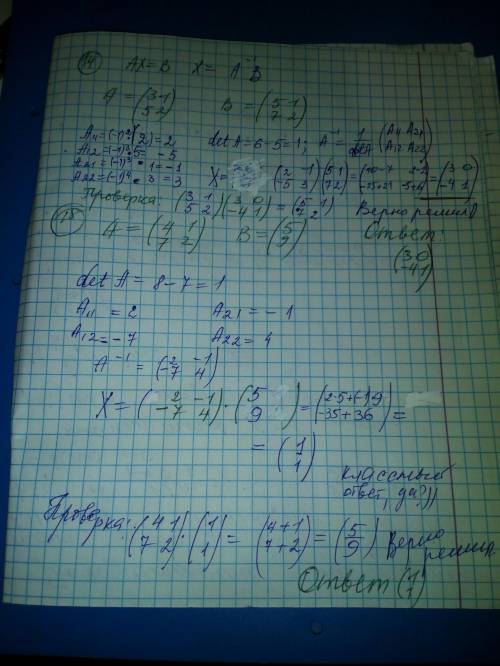 14 AX = B X = A⁻¹B
A = (3 1; 5 2) B = (5 1; 7 2)
A₁₁ = (-1)²·(2) = 2 det A = 6 - 5 = 1; A⁻¹ = 1/det A (A₁₁ A₂₁; A₁₂ A₂₂)
A₁₂ = (-1)³·5 = -5
A₂₁ = (-1)³·1 = -1 X = (2 -1; -5 3)(5 1; 7 2) = (10-7 2-2; -25+21 -5+6) = (3 0; -4 1)
A₂₂ = (-1)⁴·3 = 3
Проверка: (3 1; 5 2)(3 0; -4 1) = (5 1; 7 2) Верно решила
Ответ: (3 0; -4 1)
15 A = (4 1; 7 2) B = (5; 9)
det A = 8 - 7 = 1
A₁₁ = 2 A₂₁ = -1
A₁₂ = -7 A₂₂ = 4
A⁻¹ = (2 -1; -7 4)
X = (2 -1; -7 4)·(5; 9) = (2·5+(-1)9; -35+36) =
= (1; 1)
классный
ответ, да?))
Проверка: (4 1; 7 2)·(1; 1) = (4+1; 7+2) = (5; 9) Верно
решила
Ответ (1; 1)